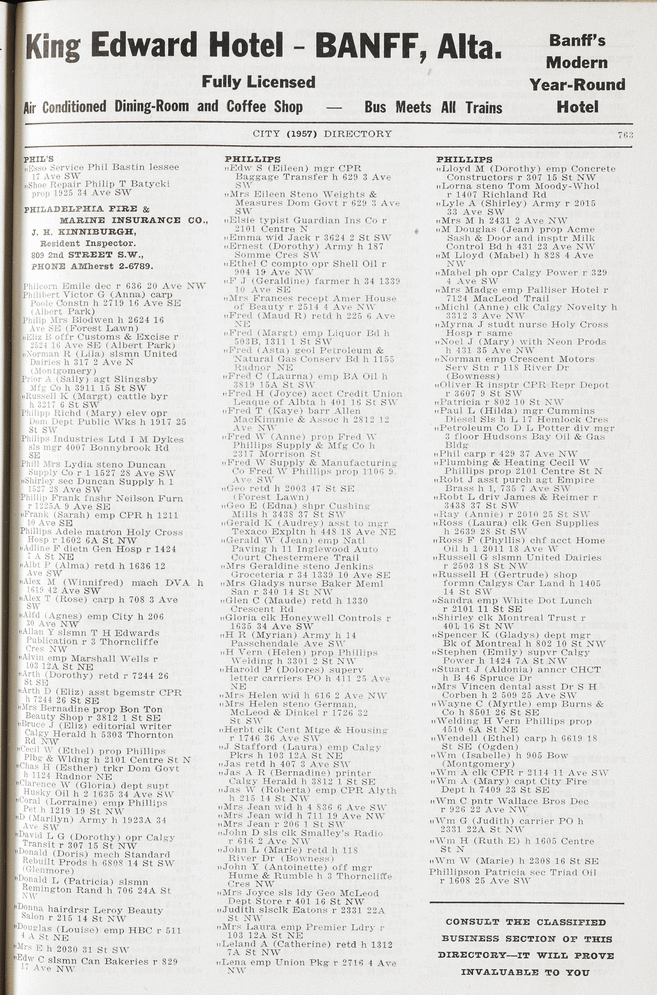 King Edward Hotel - BANFF, Alta.
Fully Licensed
Air Conditioned Dining-Room and Coffee Shop — Bus Meets All Trains
Banff's
Modern
Year-Round
Hotel
CITY (1957) DIRECTORY 763
PHIL'S
„Esso Service Phil Bastin lessee
17 Ave SW
„Shoe Repair Philip T Batycki
prop 1925 34 Ave SW
PHILADELPHIA FIRE &
MARINE INSURANCE CO.,
J. H. KINNIBURGH,
Resident Inspector.
809 2nd STREET S.W.,
PHONE AMherst 2-6789.
Philcorn Emile dec r 636 20 Ave NW
Philibert Victor G (Anna) carp
Poole Constn h 2719 16 Ave SE
(Albert Park)
Philip Mrs Blodwen h 2624 16
Ave SE (Forest Lawn)
„Eliz B offr Customs & Excise r
2524 16 Ave SE (Albert Park)
„Norman R (Lila) slsmn United
Dairies h 317 2 Ave N
(Montgomery)
Prior A (Sally) agt Slingsby
Mfg Co h 3911 15 St SW
„Russell K (Margt) cattle byr
h 3217 6 St SW
Philipp Richd (Mary) elev opr
Dom Dept Public Wks h 1917 25
St SW
Philips Industries Ltd I M Dykes
sls mgr 4007 Bonnybrook Rd
SE
Phill Mrs Lydia steno Duncan
Supply Co r 1 1527 28 Ave SW
„Shirley sec Duncan Supply h 1
1527 28 Ave SW
Phillip Frank fnshr Neilson Furn
r 1225A 9 Ave SE
„Frank (Sarah) emp CPR h 1211
10 Ave SE
Phillips Adele matron Holy Cross
Hosp r 1602 6A St NW
„Adline F dietn Gen Hosp r 1424
7 A St NE
„Albt P (Alma) retd h 1636 12
Ave SW
„Alex M (Winnifred) mach DVA h
1619 42 Ave SW
„Alex T (Rose) carp h 708 3 Ave
SW
„Alfd (Agnes) emp City h 206
20 Ave NW
„Allan Y slsmn T H Edwards
Publication r 3 Thorncliffe
Cres NW
„Alvin emp Marshall Wells r
103 12A St NE
„Arth (Dorothy) retd r 7244 26
St SE
„Arth D (Eliz) asst bgemstr CPR
h 7244 26 St SE
„Mrs Bernadine prop Bon Ton
Beauty Shop r 3812 1 St SE
„Bruce J (Eliz) editorial writer
Calgy Herald h 5303 Thornton
Rd NW
„Cecil W (Ethel) prop Phillips
Plbg & Wldng h 2101 Centre St N
„Chas H (Esther) trkr Dom Govt
h 1124 Radnor NE
„Clarence W (Gloria) dept supt
Husky Oil h 2 1635 34 Ave SW
„Coral (Lorraine) emp Phillips
Pet h 1219 19 St NW
„D (Marilyn) Army h 1923A 34
Ave SW
„David L G (Dorothy) opr Calgy
Transit r 307 15 St NW
„Donald (Doris) mech Standard
Rebuilt Prods h 6808 14 St SW
(Glenmore)
„Donald L (Patricia) slsmn
Remington Rand h 706 24A St
NW
„Donna hairdrsr Leroy Beauty
Salon r 215 14 St NW
„Douglas (Louise) emp HBC r 511
4 A St NE
„Mrs E h 2030 31 St SW
„Edw C slsmn Can Bakeries r 829
17 Ave NW
PHILLIPS
„Edw S (Eileen) mgr CPR
Baggage Transfer h 629 3 Ave
SW
„Mrs Eileen Steno Weights &
Measures Dom Govt r 629 3 Ave
SW
„Elsie typist Guardian Ins Co r
2101 Centre N
„Emma wid Jack r 3624 2 St SW
„Ernest (Dorothy) Army h 187
Somme Cres SW
„Ethel C compto opr Shell Oil r
904 19 Ave NW
„F J (Geraldine) farmer h 34 1339
10 Ave SE
„Mrs Frances recept Amer House
of Beauty r 2514 4 Ave NW
„Fred (Maud R) retd h 225 6 Ave
NE
„Fred (Margt) emp Liquor Bd h
503B, 1311 1 St SW
„Fred (Asta) geol Petroleum &
Natural Gas Conserv Bd h 1155
Radnor NE
„Fred C (Laurna) emp BA Oil h
3819 15A St SW
„Fred H (Joyce) acct Credit Union
League of Albta h 401 16 St SW
„Fred T (Kaye) barr Allen
MacKimmie & Assoc h 2812 12
Ave NW
„Fred W (Anne) prop Fred W
Phillips Supply & Mfg Co h
2317 Morrison St
„Fred W Supply & Manufacturing
Co Fred W Phillips prop 1106 9
Ave SW
„Geo retd h 2003 47 St SE
(Forest Lawn)
„Geo E (Edna) shpr Cushing
Mills h 3438 37 St SW
„Gerald K (Audrey) asst to mgr
Texaco Expltn h 448 18 Ave NE
„Gerald W (Jean) emp Natl
Paving h 11 Inglewood Auto
Court Chestermere Trail
„Mrs Geraldine steno Jenkins
Groceteria r 34 1339 10 Ave SE
„Mrs Gladys nurse Baker Meml
San r 340 14 St NW
„Glen C (Maude) retd h 1330
Crescent Rd
„Gloria clk Honeywell Controls r
1635 34 Ave SW
„H R (Myrian) Army h 14
Passchendale Ave SW
„H Vern (Helen) prop Phillips
Welding h 3301 2 St NW
„Harold P (Dolores) superv
letter carriers PO h 411 25 Ave
NE
„Mrs Helen wid h 616 2 Ave NW
„Mrs Helen steno German,
McLeod & Dinkel r 1726 32
St SW
„Herbt clk Cent Mtge & Housing
r 1746 36 Ave SW
„J Stafford (Laura) emp Calgy
Pkrs h 103 12A St NE
„Jas retd h 407 3 Ave SW
„Jas A R (Bernadine) printer
Calgy Herald h 3812 1 St SE
„Jas W (Roberta) emp CPR Alyth
h 215 14 St NW
„Mrs Jean wid h 4 836 6 Ave SW
„Mrs Jean wid h 711 19 Ave NW
„Mrs Jean r 206 1 St SW
„John D sls clk Smalley's Radio
r 616 2 Ave NW
„John L (Marie) retd h 118
River Dr (Bowness)
„John Y (Antoinette) off mgr
Hume & Rumble h 3 Thorncliffe
Cres NW
„Mrs Joyce sls ldy Geo McLeod
Dept Store r 401 16 St NW
„Judith slsclk Eatons r 2331 22A
St NW
„Mrs Laura emp Premier Ldry r
103 12A St NE
„Leland A (Catherine) retd h 1312
7A St NW
„Lena emp Union Pkg r 2716 4 Ave
NW
PHILLIPS
„Lloyd M (Dorothy) emp Concrete
Constructors r 307 15 St NW
„Lorna steno Tom Moody-Whol
r 1407 Richland Rd
„Lyle A (Shirley) Army r 2015
33 Ave SW
„Mrs M h 2431 2 Ave NW
„M Douglas (Jean) prop Acme
Sash & Door and insptr Milk
Control Bd h 431 23 Ave NW
„M Lloyd (Mabel) h 828 4 Ave
NW
„Mabel ph opr Calgy Power r 329
4 Ave SW
„Mrs Madge emp Palliser Hotel r
7124 MacLeod Trail
„Michl (Anne) clk Calgy Novelty h
3312 3 Ave NW
„Myrna J studt nurse Holy Cross
Hosp r same
„Noel J (Mary) with Neon Prods
h 431 35 Ave NW
„Norman emp Crescent Motors
Serv Stn r 118 River Dr
(Bowness)
„Oliver R insptr CPR Repr Depot
r 3607 9 St SW
„Patricia r 802 10 St NW
„Paul L (Hilda) mgr Cummins
Diesel Sls h L 17 Hemlock Cres
„Petroleum Co D L Potter div mgr
3 floor Hudsons Bay Oil & Gas
Bldg
„Phil carp r 429 37 Ave NW
„Plumbing & Heating Cecil W
Phillips prop 2101 Centre St N
„Robt J asst purch agt Empire
Brass h, 735 7 Ave SW
„Robt L driv James & Reimer r
3438 37 St SW
„Ray (Annie) r 2010 25 St SW
„Ross (Laura) clk Gen Supplies
h 2639 28 St SW
„Ross F (Phyllis) chf acct Home
Oil h 1 2011 18 Ave W
„Russell G slsmn United Dairies
r 2503 18 St NW
„Russell H (Gertrude) shop
formn Calgys Car Land h 1405
14 St SW
„Sandra emp White Dot Lunch
r 2101 11 St SE
„Shirley clk Montreal Trust r
401 16 St NW
„Spencer K (Gladys) dept mgr
Bk of Montreal h 802 10 St NW
„Stephen (Emily) supvr Calgy
Power h 1424 7A St NW
„Stuart J (Aldonia) anncr CHCT
h B 46 Spruce Dr
„Mrs Vincen dental asst Dr S H
Corbeh h 2 509 25 Ave SW
„Wayne C (Myrtle) emp Burns &
Co h 8501 26 St SE
„Welding H Vern Phillips prop
4510 6A St NE
„Wendell (Ethel) carp h 6619 18
St SE (Ogden)
„Wm (Isabelle) h 905 Bow
(Montgomery)
„Wm A clk CPR r 2114 11 Ave SW
„Wm A (Mary) capt City Fire
Dept h 7409 23 St SE
„Wm C pntr Wallace Bros Dec
r 926 22 Ave NW
„Wm G (Judith) carrier PO h
2331 22A St NW
„Wm H (Ruth E) h 1605 Centre
St N
„Wm W (Marie) h 2308 16 St SE
Phillipson Patricia sec Triad Oil
r 1608 25 Ave SW
CONSULT THE CLASSIFIED
BUSINESS SECTION OF THIS
DIRECTORY—IT WILL PROVE
INVALUABLE TO YOU